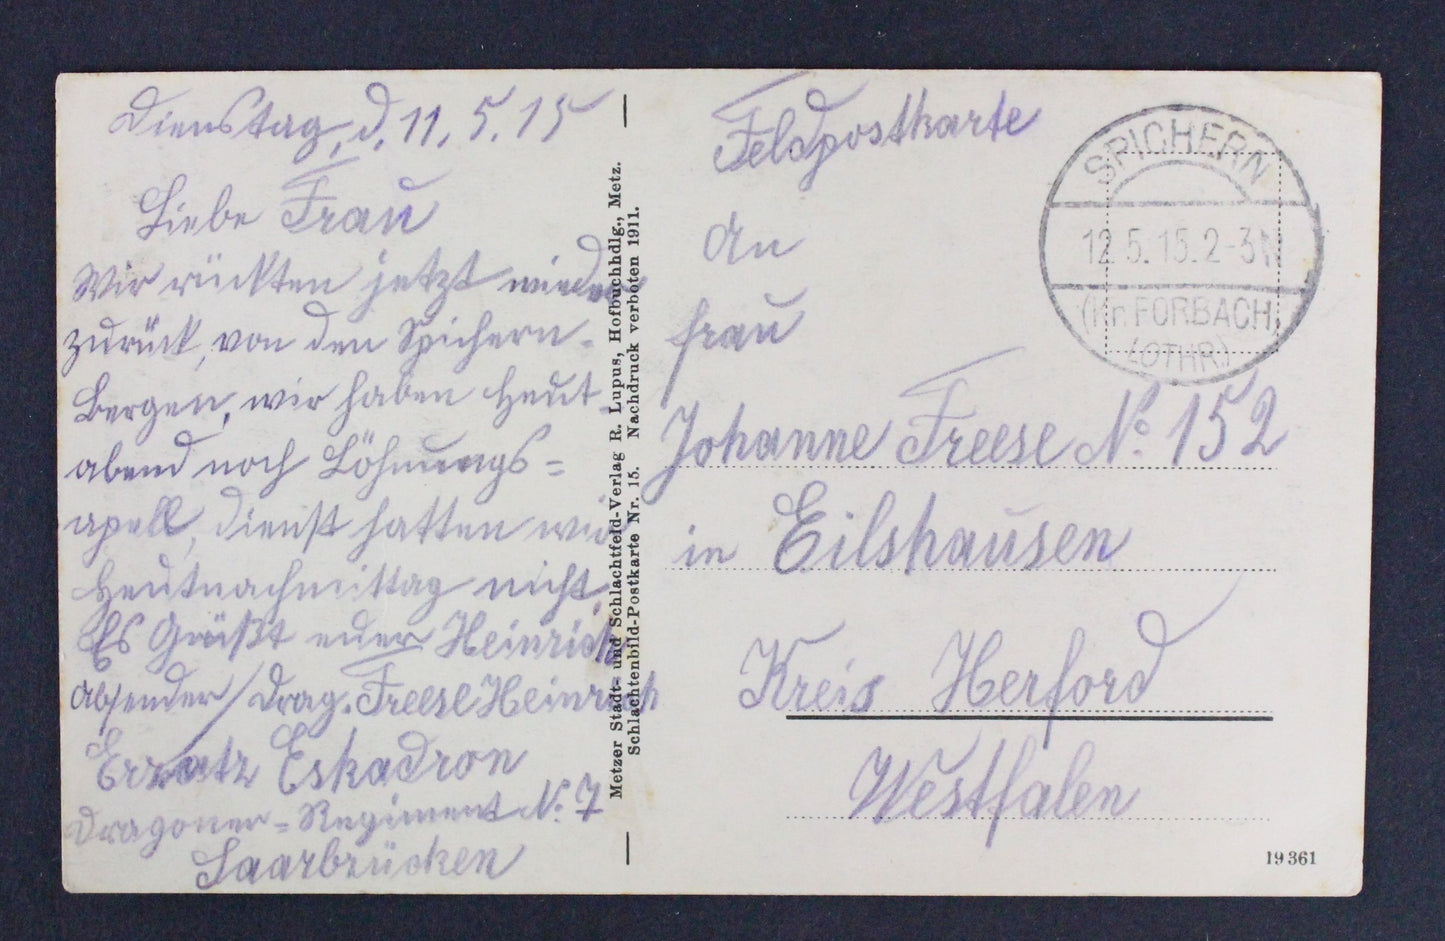 Dienstag, d. 11. 5. 15
Liebe Frau
Wir rückten jetzt wieder
zurück, von den Spichern-
Bergen, wir haben Heut-
abend noch Löhnungs=
apell, dienst hatten wir
Heutnachmittag nicht.
Es Grüßt euer Heinrich
Absender / Drag. Freese Heinrich
Ersatz Eskadron
Dragoner=Regiment No. 7
Saarbrücken
Metzer Stadt- und Schlachtfeld-Verlag R. Lupus, Hofbuchhdlg., Metz.
Schlachtenbild-Postkarte Nr. 15. Nachdruck verboten 1911.
Feldpostkarte
An
Frau
Johanne Freese No. 152
in Eilshausen
Kreis Herford
Westfalen
SPICHERN
12.5.15.2-3N
(Kr. FORBACH,
(LOTHR.)
19361